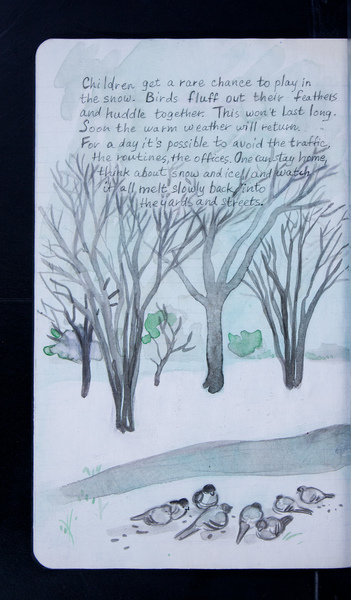 Children get a rare chance to play in
the snow. Birds fluff out their feathers
and huddle together. This won't last long.
Soon the warm weather will return.
For a day it's possible to avoid the traffic,
the routines, the offices. One can stay home,
think about snow and ice, and watch
it all melt slowly back into
the yards and streets.